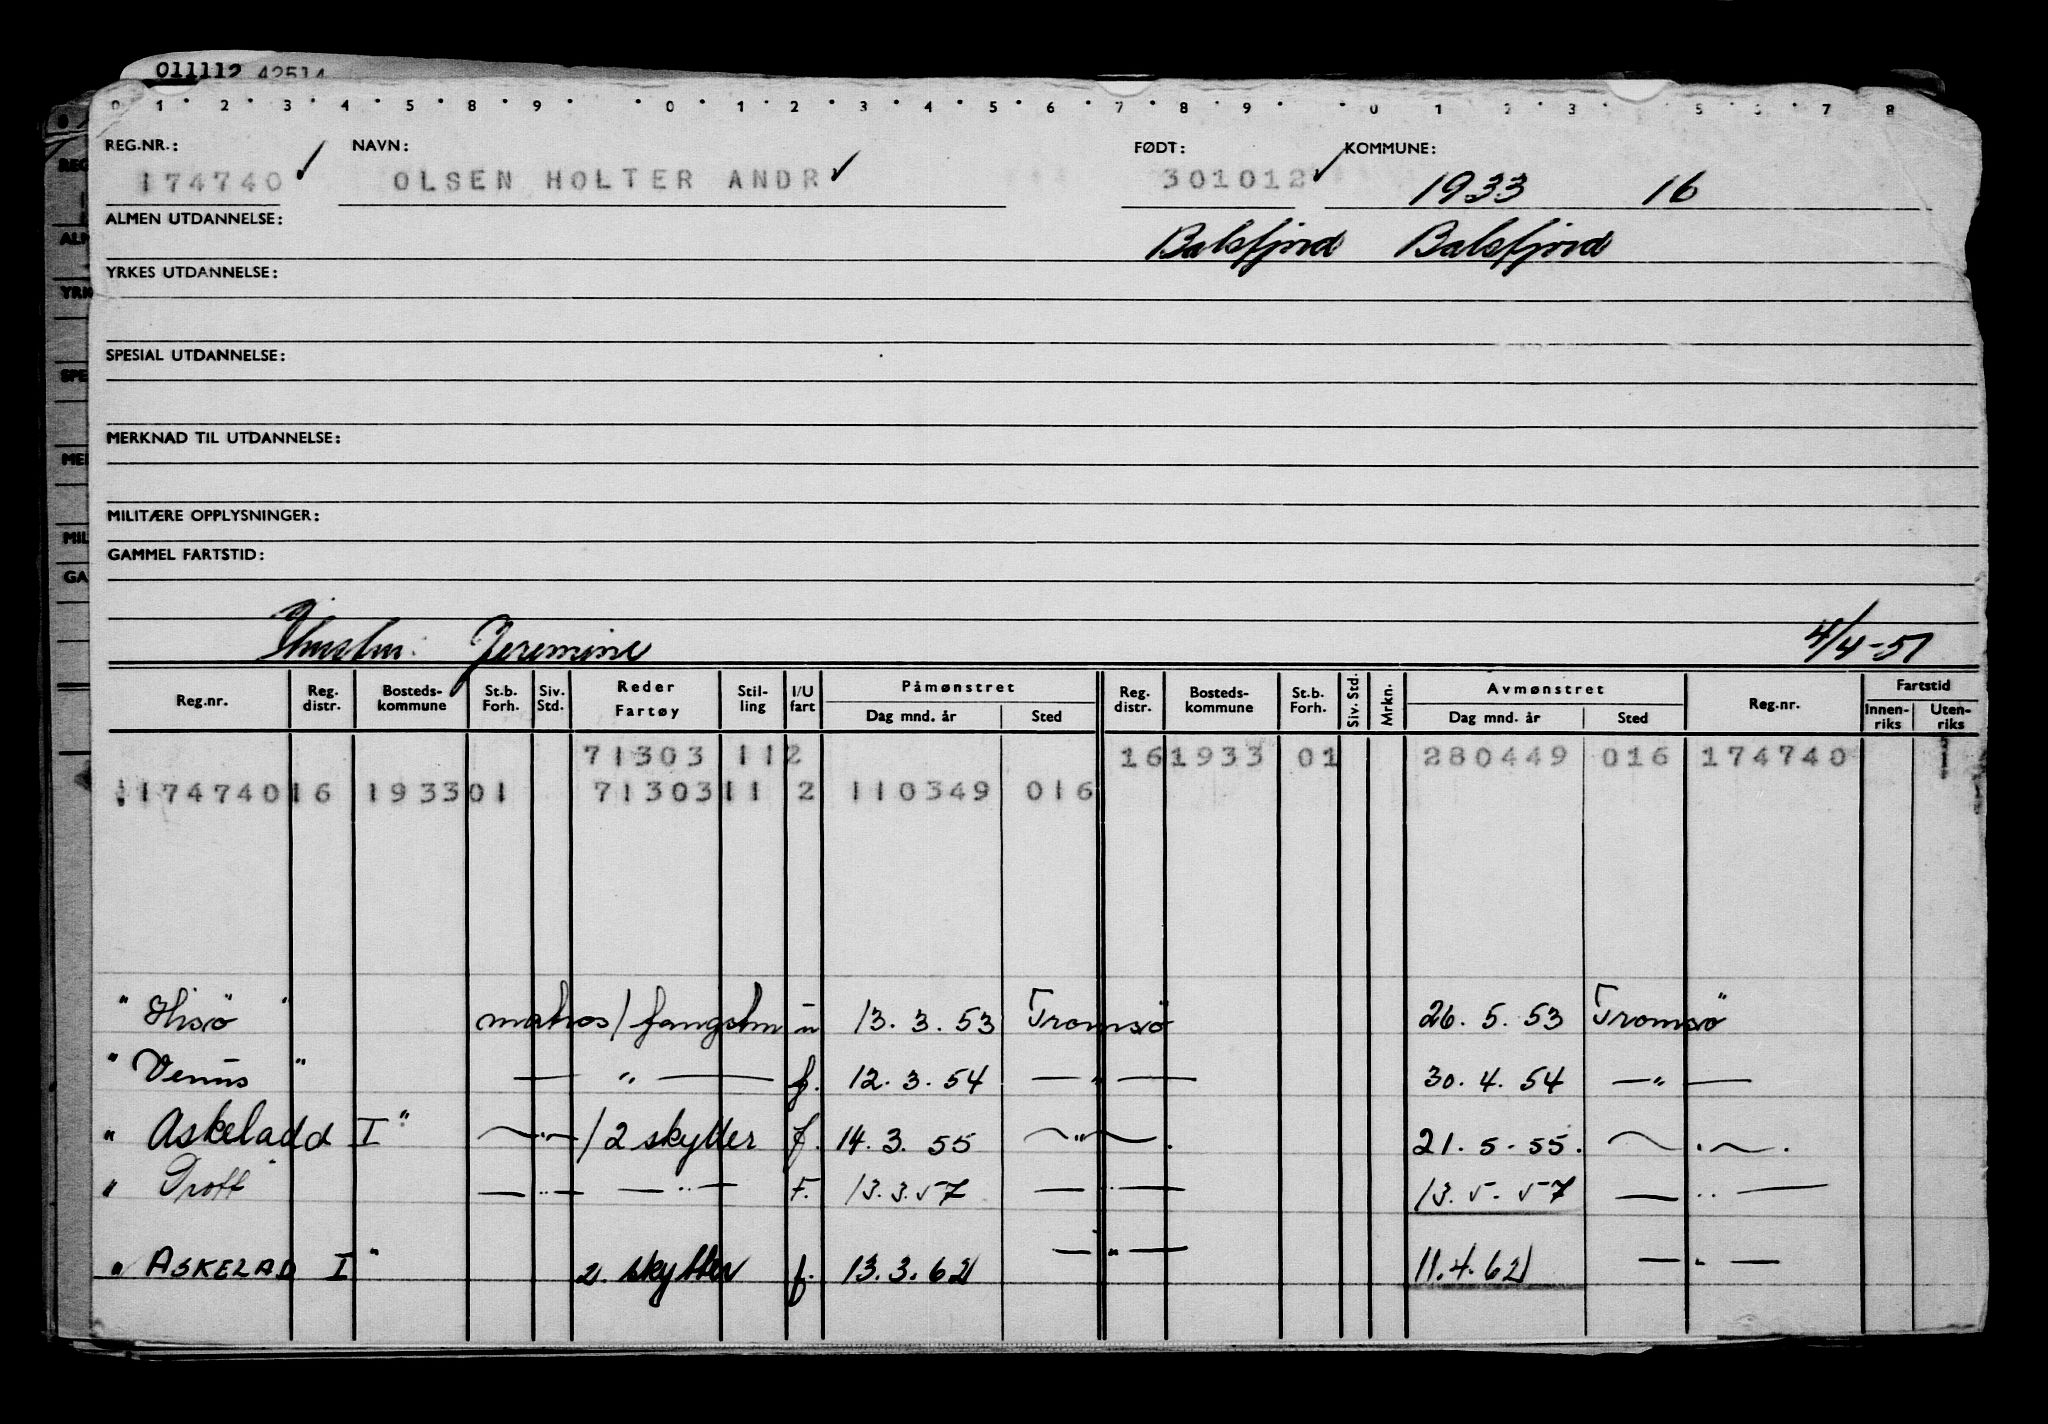 011112 42514
0 1 2 3 4 5 8 9 0 1 2 3 4 5 6 7 8 9 0 1 2 3 5 6 7 8
REG.NR.: NAVN: FØDT: KOMMUNE:
174740 OLSEN HOLTER ANDR 301012 1933 16
ALMEN UTDANNELSE: Balsfjord Balsfjord
YRKES UTDANNELSE:
SPESIAL UTDANNELSE:
MERKNAD TIL UTDANNELSE:
MILITÆRE OPPLYSNINGER:
GAMMEL FARTSTID:
Hustru: Jeremine 4/4-51
Reg.nr. Reg. distr. Bosteds-kommune St.b. Forh. Siv. Std. Reder Fartøy Stil-ling I/U fart Påmønstret Dag mnd. år Sted Reg. distr. Bosteds-kommune St.b. Forh. Siv. Std. Mrkn. Avmønstret Dag mnd. år Sted Reg.nr. Fartstid Innen-riks Uten-riks
71303 112 16 1933 01 280449 016 174740
174740 16 1933 01 71303 11 2 110349 016
"Hisø" matros/fangstm u 13.3.53 Tromsø 26.5.53 Tromsø
"Venus" — " — f. 12.3.54 — " — 30.4.54 — " —
"Askeladd I" — " — /2 skytter f. 14.3.55 — " — . 21.5-55. — " — .
"Drott" — " — — " — F. 13.3.57 — " — 13.5.57 — " —
"ASKELAD I" 2. skytter f. 13.3.62 — " — 11.4.62 — " —